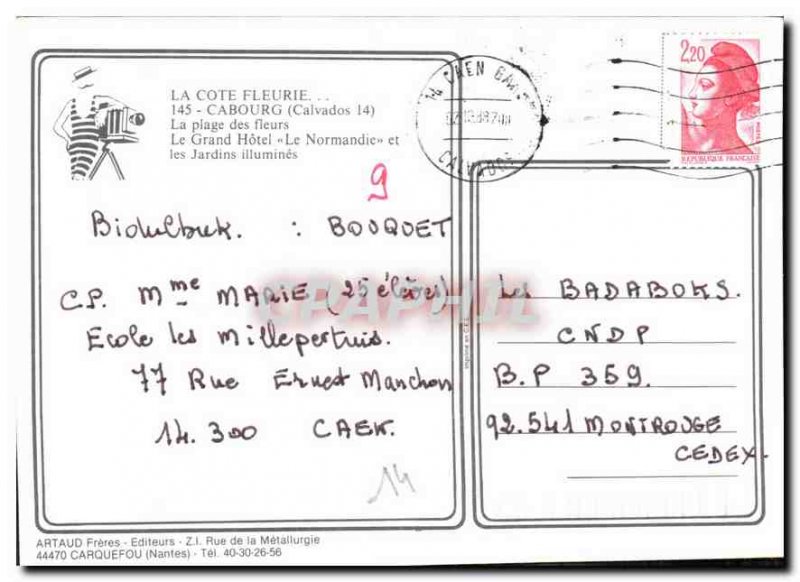 LA COTE FLEURIE. . .
145 - CABOURG (Calvados 14)
La plage des fleurs
Le Grand Hôtel «Le Normandie» et
les Jardins illuminés
CALVADOS
2,20
REPUBLIQUE FRANÇAISE
9
: BOUQUET
C.P. Mme MARIE (25 élèves)
Ecole les Millepertuis.
77 Rue Ernest Manchon
14.300 CAEN.
14
Les BADABOKS.
CNDP
B.P 359.
92.541 MONTROUGE
CEDEX.
CPAPHIL
ARTAUD Frères - Editeurs - Z.I. Rue de la Métallurgie
44470 CARQUEFOU (Nantes) - Tél. 40-30-26-56